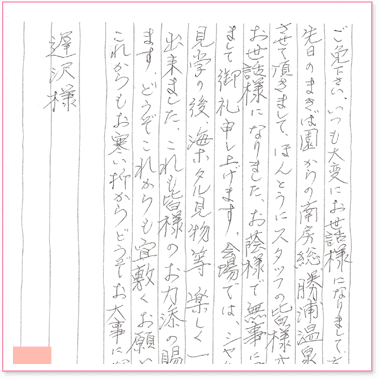 ご免下さい、いつも大変にお世話様になりまして、
先日のまきば園からの南房総勝浦温泉
させて頂きまして、ほんとうにスタッフの皆様
お世話様になりました、お蔭様で無事に
まして御礼申し上げます。会場では
見学の後、海ホタル見物等 楽しく
出来ました、これも皆様のお力添の賜
ます、どうぞこれからも宜敷くお願い
これからもお寒い折からどうぞお大事に
遅沢様